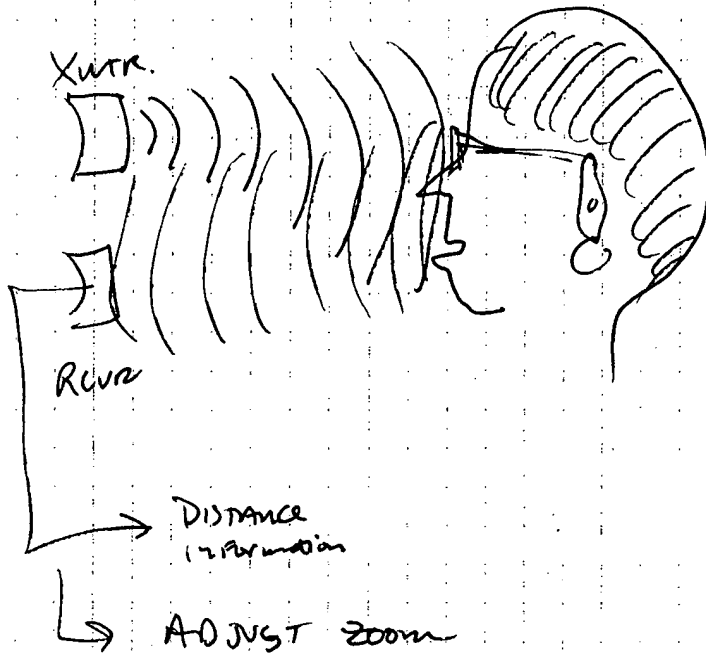 XMTR.
RCVR
DISTANCE
information
ADJUST Zoom